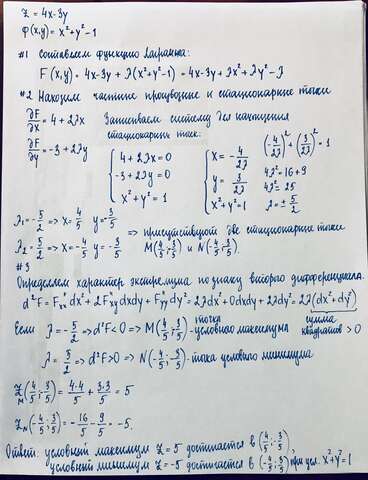 z = 4x-3y
φ(x,y) = x²+y²-1
#1 Составляем функцию Лагранжа:
F(x,y) = 4x-3y + λ(x²+y²-1) = 4x-3y + λx² + λy² - λ
#2 Находим частные производные и стационарные точки
∂F/∂x = 4+2λx Записываем систему для нахождения стационарных точек:
∂F/∂y = -3+2λy
{ 4+2λx=0
-3+2λy=0
x²+y²=1
{ x = -4/2λ
y = 3/2λ
x²+y²=1
(-4/2λ)² + (3/2λ)² = 1
4λ² = 16+9
4λ² = 25
λ = ± 5/2
λ₁ = -5/2 ⇒ x = 4/5 y = -3/5
λ₂ = 5/2 ⇒ x = -4/5 y = 3/5
⇒ присутствуют две стационарные точки
M(4/5; -3/5) и N(-4/5; 3/5).
#3
Определяем характер экстремума по знаку второго дифференциала.
d²F = F''xx dx² + 2F''xy dxdy + F''yy dy² = 2λdx² + 0dxdy + 2λdy² = 2λ(dx²+dy²)
сумма квадратов > 0
Если λ = -5/2 ⇒ d²F < 0 ⇒ M(4/5; -3/5) - точка условного максимума
λ = 5/2 ⇒ d²F > 0 ⇒ N(-4/5; 3/5) - точка условного минимума
z M(4/5; -3/5) = 4·4/5 + 3·3/5 = 5
z N(-4/5; 3/5) = -16/5 - 9/5 = -5.
Ответ: условный максимум z = 5 достигается в (4/5; -3/5)
условный минимум z = -5 достигается в (-4/5; 3/5) при усл. x²+y²=1